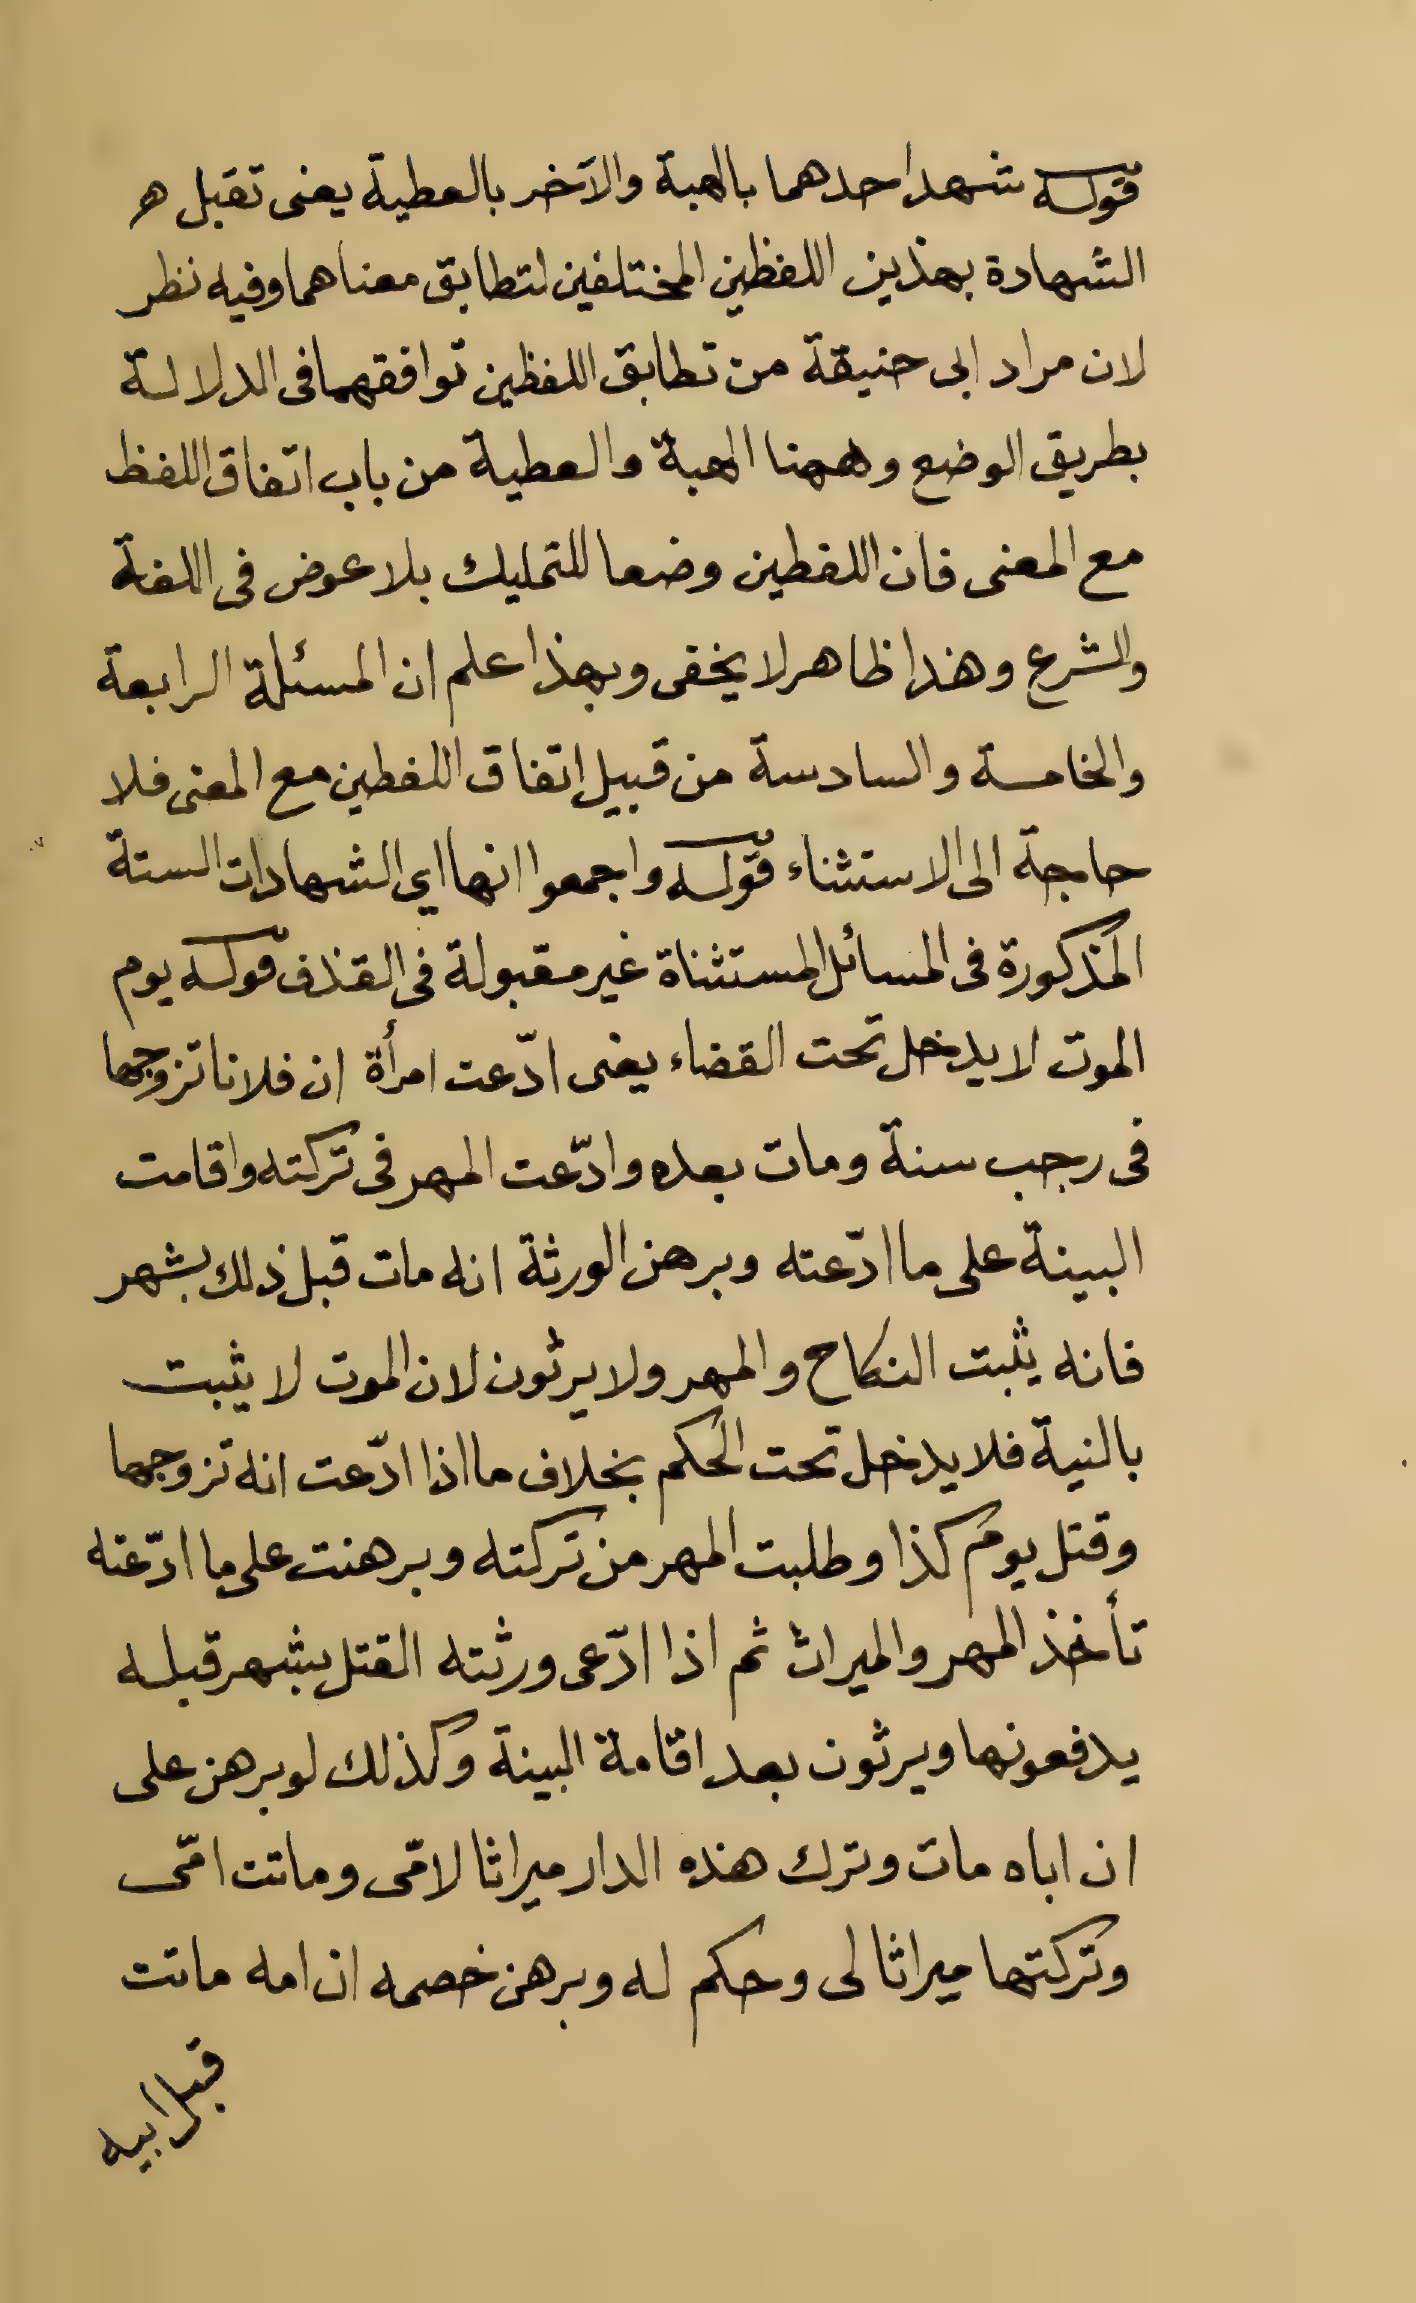 قوله شهد احدهما بالهبة والآخر بالعطية يعنى تقبل ه
الشهادة بهذين اللفظين المختلفين لتطابق معناهما وفيه نظر
لان مراد ابى حنيفة من تطابق اللفظين توافقهما فى الدلالة
بطريق الوضع وههنا الهبة والعطية من باب اتفاق اللفظ
مع المعنى فان اللفظين وضعا للتمليك بلا عوض فى اللغة
والشرع وهذا ظاهر لا يخفى وبهذا علم ان المسئلة الرابعة
والخامسة والسادسة من قبيل اتفاق اللفظين مع المعنى فلا
حاجة الى الاستثناء قوله واجمعوا انها اي الشهادات الستة
المذكورة فى المسائل المستثناة غير مقبولة فى القذف قوله يوم
الموت لا يدخل تحت القضاء يعنى ادّعت امرأة ان فلانا تزوجها
فى رجب سنة ومات بعده وادّعت المهر فى تركته واقامت
البينة على ما ادّعته وبرهن الورثة انه مات قبل ذلك بشهر
فانه يثبت النكاح والمهر ولا يرثون لان الموت لا يثبت
بالنية فلا يدخل تحت الحكم بخلاف ما اذا ادّعت انه تزوجها
وقتل يوم كذا وطلبت المهر من تركته وبرهنت على ما ادّعته
تأخذ المهر والميراث ثم اذا ادّعى ورثته القتل بشهر قبله
يدفعونها ويرثون بعد اقامة البينة وكذلك لو برهن على
ان اباه مات وترك هذه الدار ميراثا لامّى وماتت امّى
وتركتها ميراثا لى وحكم له وبرهن خصمه ان امه ماتت
قبل ابيه